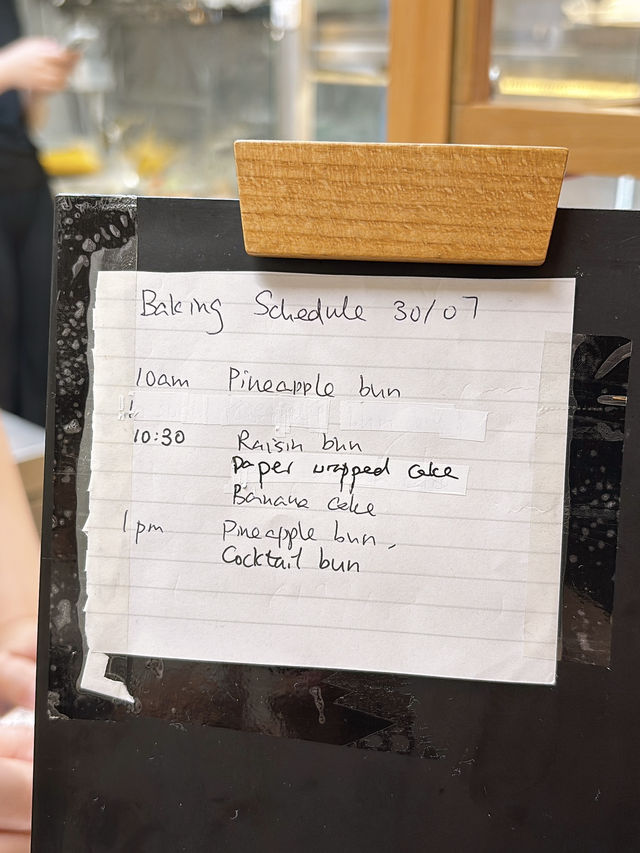 Baking Schedule 30/07
10am Pineapple bun
10:30 Raisin bun
Paper wrapped cake
Banana cake
1pm Pineapple bun,
Cocktail bun